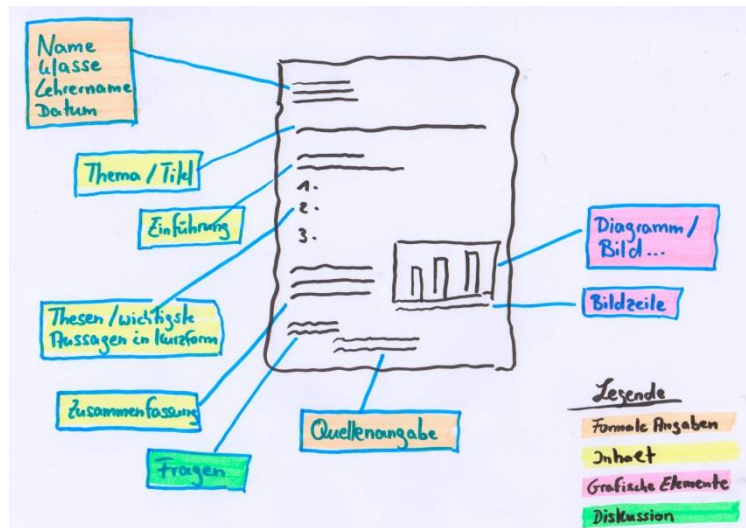 Name
Klasse
Lehrername
Datum
Thema / Titel
Einführung
1.
2.
3.
Thesen / wichtigste
Aussagen in Kurzform
Zusammenfassung
Fragen
Quellenangabe
Diagramm /
Bild...
Bildzeile
Legende
Formale Angaben
Inhalt
Grafische Elemente
Diskussion